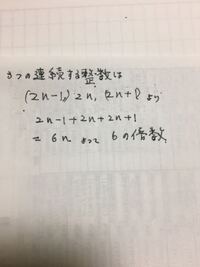 3つの連続する整数は
(2n-1), 2n, (2n+1) より
2n-1+2n+2n+1
= 6n よって 6の倍数